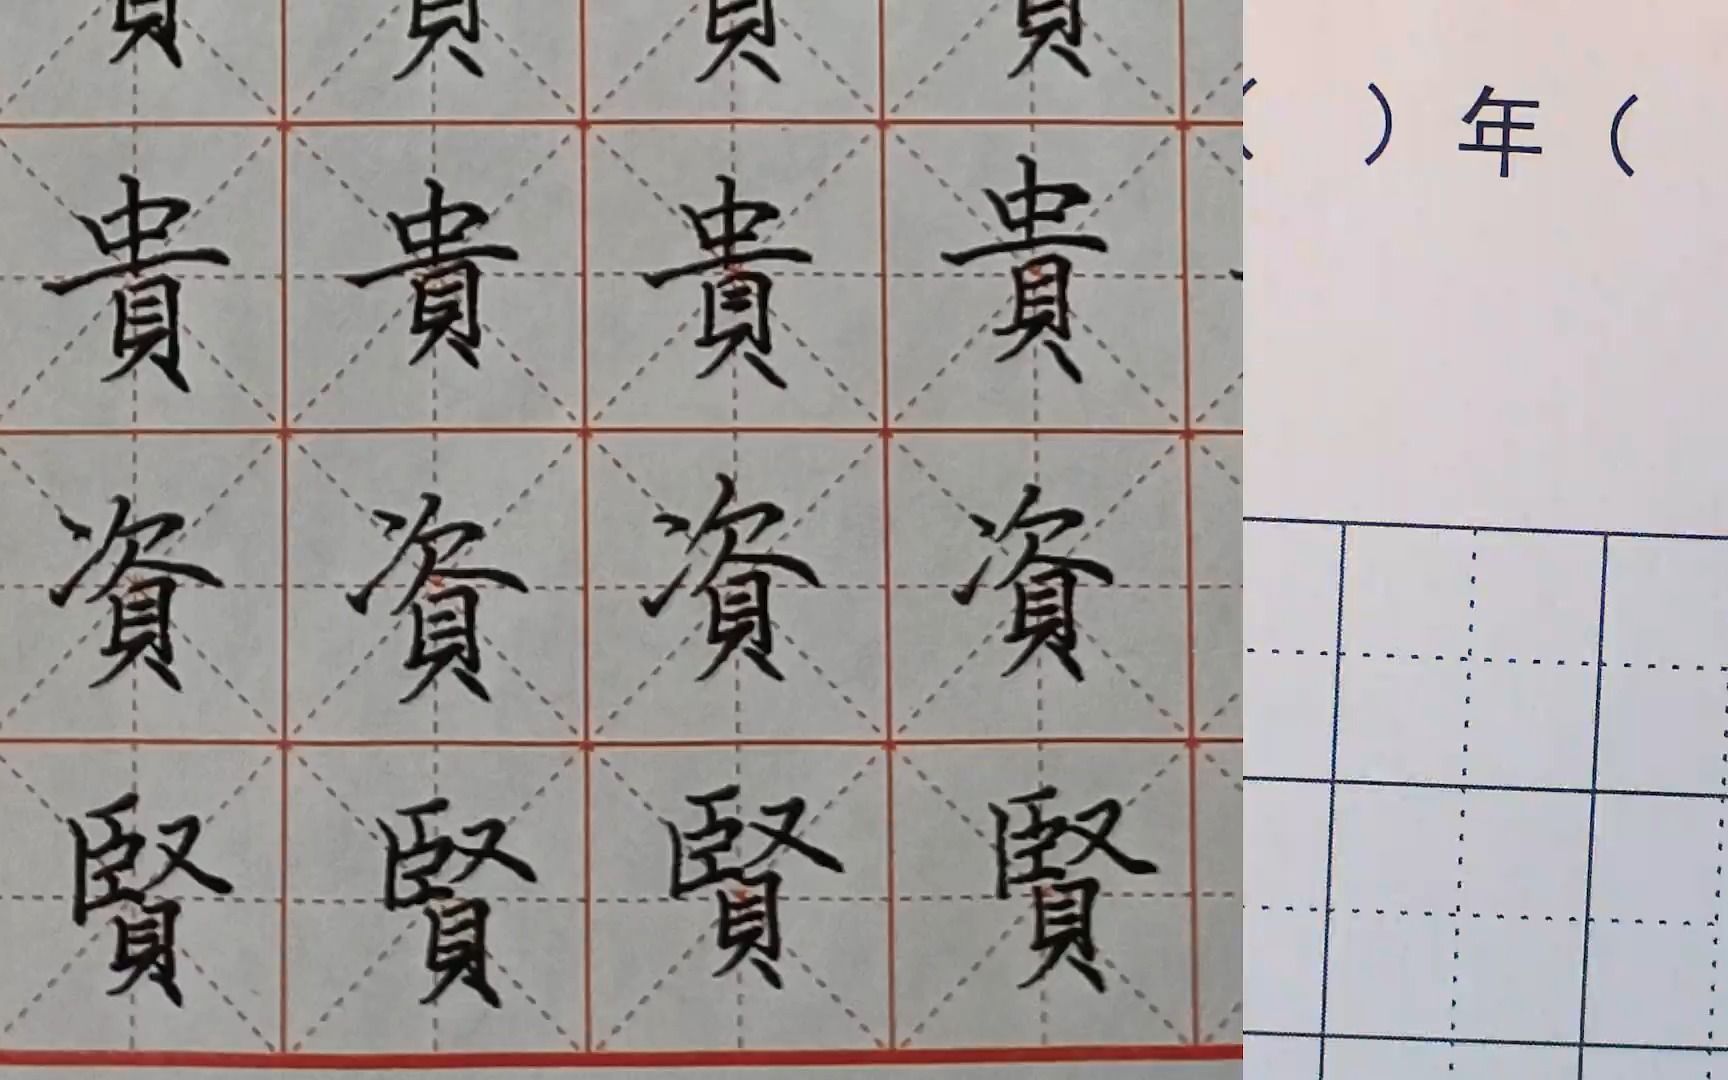 貴 貴 貴 貴
資 資 資 資
賢 賢 賢 賢
（ ）年（